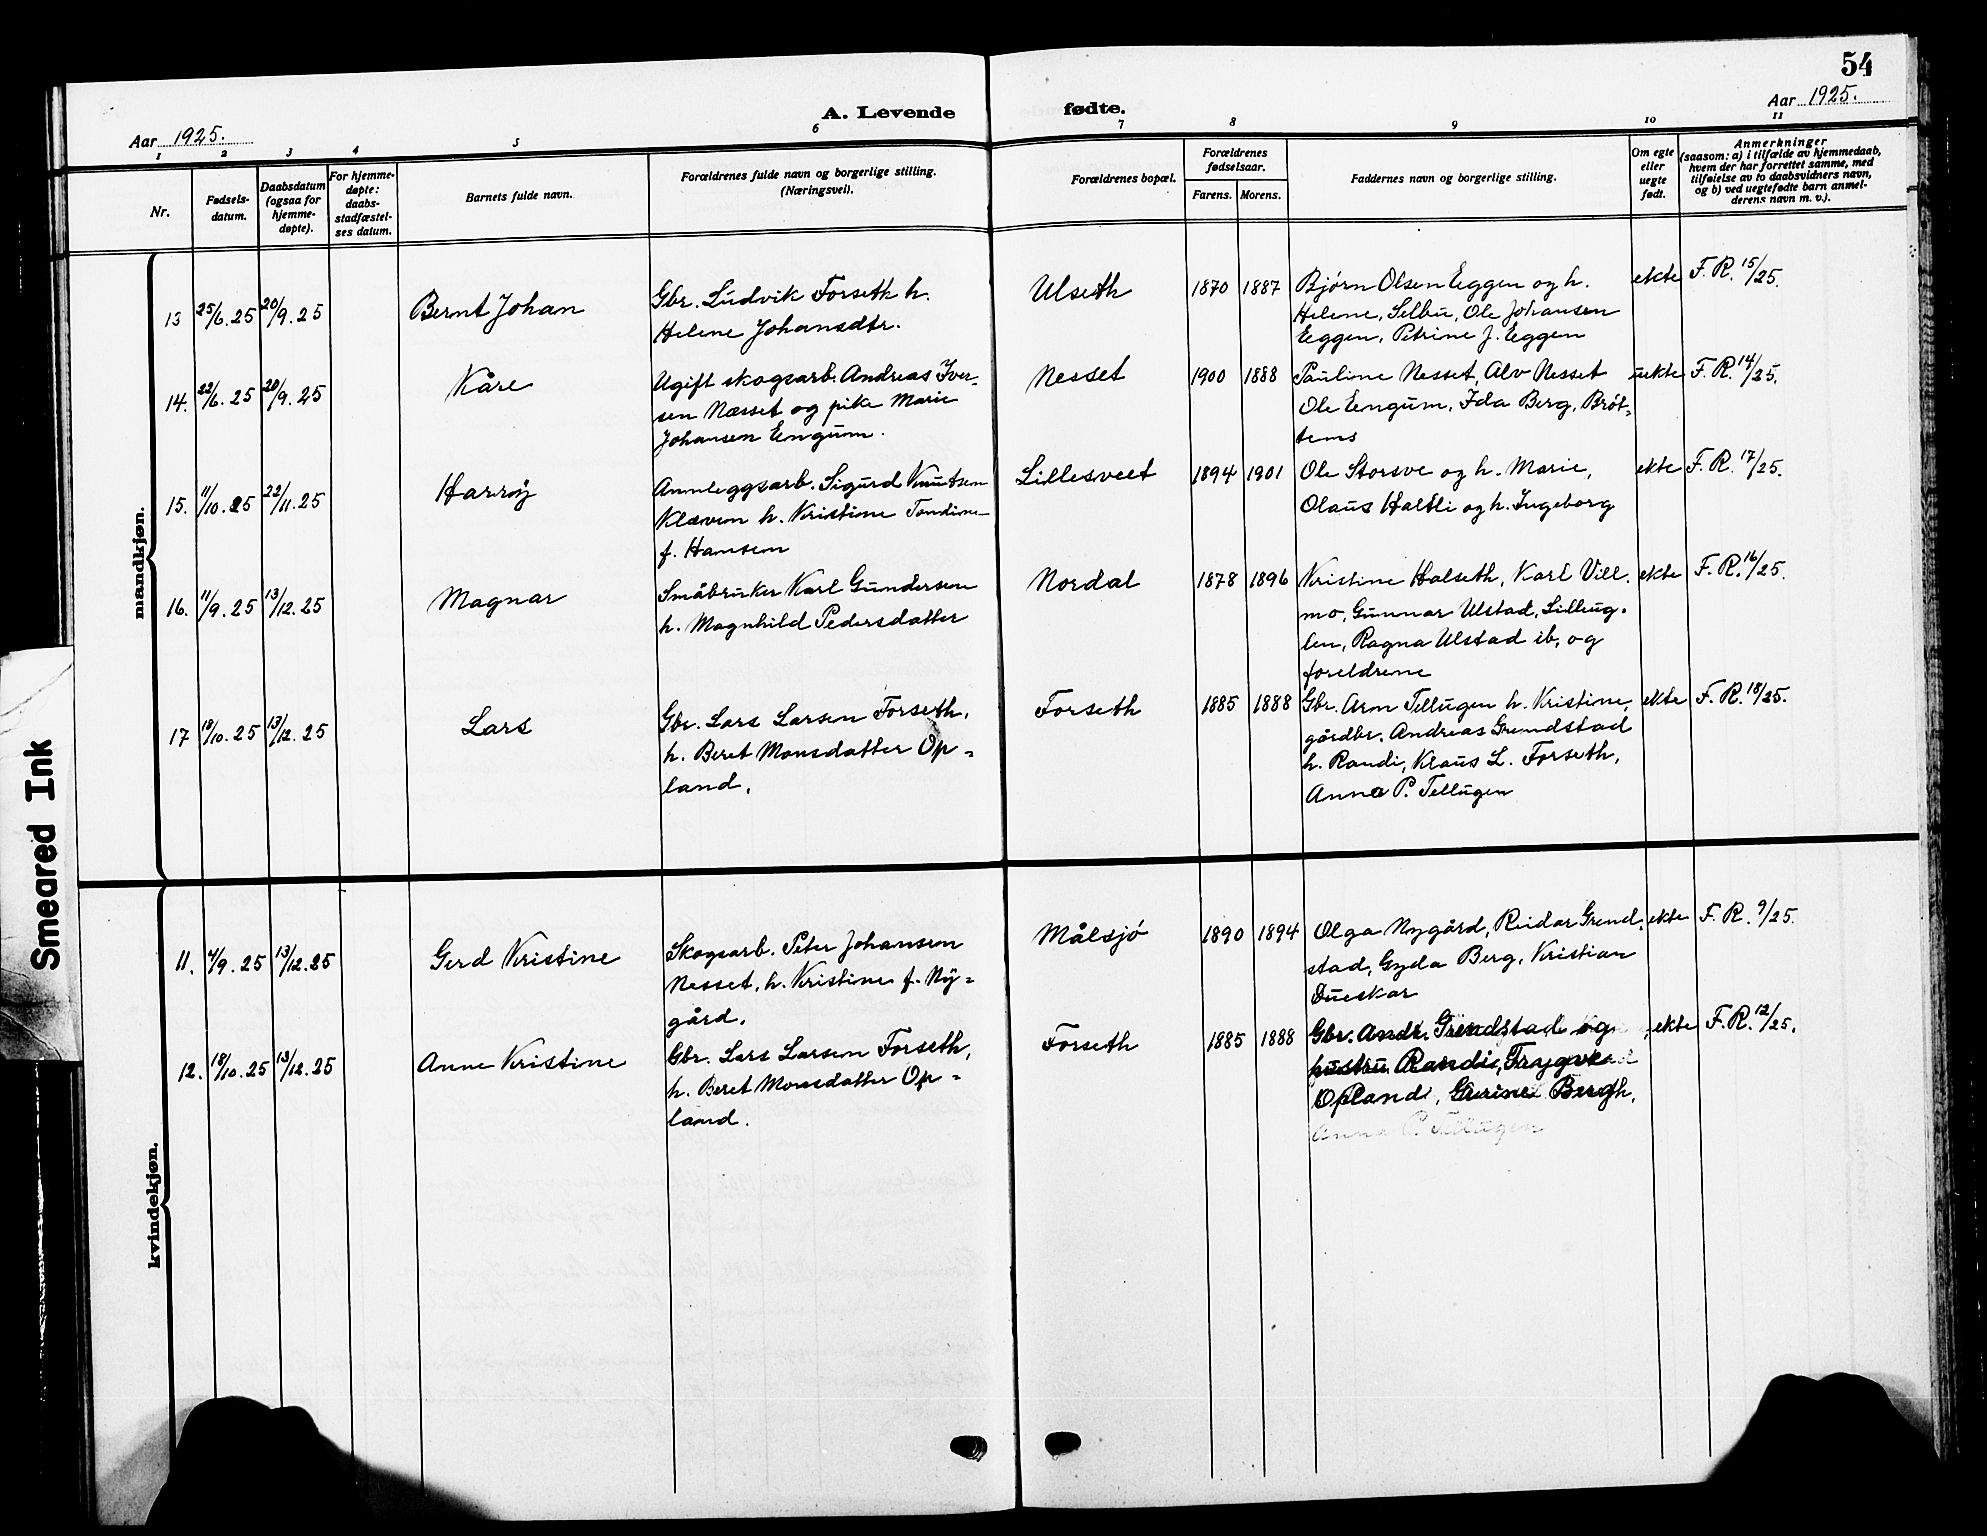 54
Aar 1925.
A. Levende
fødte.
Aar 1925.
1 2 3 4 5 6 7 8 9 10 11
Nr.
Fødsels-
datum.
Daabsdatum
(ogsaa for
hjemme-
døpte).
For hjemme-
døpte:
daabs-
stadfæstel-
ses datum.
Barnets fulde navn.
Forældrenes fulde navn og borgerlige stilling.
(Næringsvei).
Forældrenes bopæl.
Forældrenes
fødselsaar.
Farens. Morens.
Faddernes navn og borgerlige stilling.
Om egte
eller
uegte
født.
Anmerkninger
(saasom: a) i tilfælde av hjemmedaab,
hvem der har forrettet samme, med
tilføielse av to daabsvidners navn,
og b) ved uegtefødte barn anmel-
derens navn m. v.).
mandkjøn.
13 25/6.25 20/9.25 Bernt Johan
Gbr. Ludvik Forseth h.
Helene Johansdtr.
Ulseth 1870 1887
Bjørn Olsen Eggen og h.
Helene, Selbu, Ole Johansen
Eggen, Petrine J. Eggen
ekte F. R. 15/25.
14. 22/6.25 20/9.25 Kåre
Ugift skogsarb. Andreas Iver-
sen Næsset og pike Marie
Johansen Engum.
Nesset 1900 1888
Pauline Nesset, Alv Nesset
Ole Engum, Ida Berg, Brøt-
tems
uekte F. R. 14/25.
15. 11/10.25 22/11.25 Harry
Annleggsarb. Sigurd Knutsen
Klæven h. Kristine Tondine
f. Hansen
Lillesveet 1894 1901
Ole Storsve og h. Marie,
Olaus Haltli og h. Ingeborg
ekte F. R. 17/25.
16. 11/9.25 13/12.25 Magnar
Småbruker Karl Gundersen
h. Magnhild Pedersdatter
Nordal 1878 1896
Kristine Halseth, Karl Vill
mo, Gunnar Ulstad, Lilleug-
len, Ragna Ulstad ib, og
foreldrene
ekte F. R. 16/25.
17 18/10.25 13/12.25 Lars
Gbr. Lars Larsen Forseth,
h. Beret Monsdatter Op-
land.
Forseth 1885 1888
Gbr. Arn Tellugen h. Kristine,
gårdbr. Andreas Grendstad
h. Randi, Klaus L. Forseth,
Anna P. Tellugen
ekte F. R. 18/25.
Smeared Ink
kvindekjøn.
11. 4/9.25 13/12.25 Gerd Kristine
Skogsarb. Peter Johansen
Nesset, h. Kristine f. Ny-
gård.
Målsjó 1890 1894
Olga Nygård, Reidar Grend-
stad, Gyda Berg, Kristian
Dueskar
ekte F. R. 9/25.
12. 18/10.25 13/12.25 Anne Kristine
Gbr. Lars Larsen Forseth,
h. Beret Monsdatter Op-
land.
Forseth 1885 1888
Gbr. Andr. Grendstad og
hustru Randi, Trygve
Opland, Gurine Bergh,
Anna P. Tellugen
ekte F. R. 12/25.